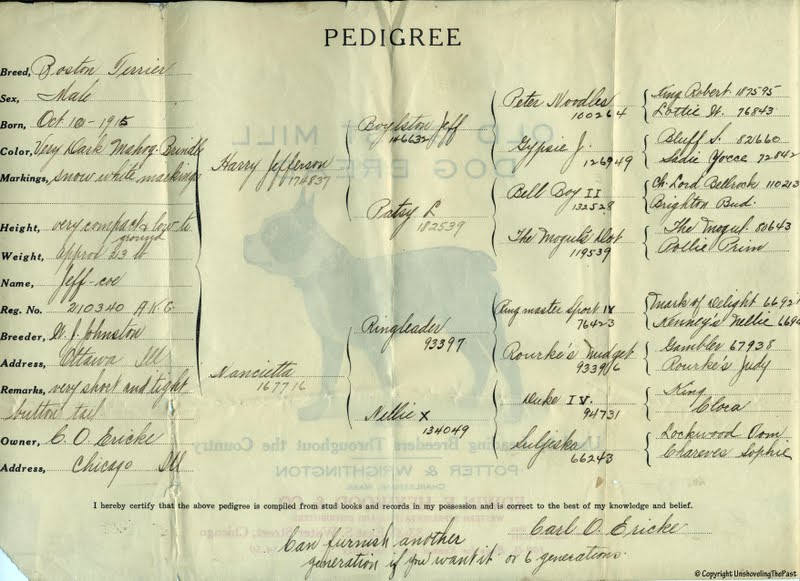 PEDIGREE
Breed, Boston Terrier
Sex, Male
Born, Oct 10 - 1915
Color, Very Dark Mahog. Brindle
Markings, snow white markings
Height, very compact & low to
ground
Weight, approx 23 lb
Name, Jeff-coe
Reg. No. 210340 A.K.C.
Breeder, W. J. Johnston
Address, Ottawa Ill
Remarks, very short and tight
button tail
Owner, C. O. Ericke
Address, Chicago Ill
Harry Jefferson
174837
Nancietta
167716
Boylston Jeff
146632
Patsy L
182539
Ringleader
93397
Nellie X
134049
Peter Noodles
100264
Gypsie J.
126949
Bell Boy II
132528
The Mogul's Dot
119539
Ringmaster Sport IV
76423
Rourke's Midget
93396
Duke IV.
94731
Suljiska
66243
King Robert 187595
Lottie W. 76843
Bluff S. 82660
Sadie Yocce 72842
Ch. Lord Bellrock 110213
Brighton Bud.
The Mogul. 80643
Pollie Prim
Mark of Delight 6692
Kenney's Nellie 669
Gambler 67938
Rourke's Judy
King
Cloca
Lockwood Dom
Chareves Sophie
OLD MILL
DOG BRE
Used by Leading Breeders Throughout the Country
POTTER & WRIGHTINGTON
I hereby certify that the above pedigree is compiled from stud books and records in my possession and is correct to the best of my knowledge and belief.
Carl O. Ericke
Can furnish another
generation if you want it or 6 generations.
© Copyright UnshovelingThePast